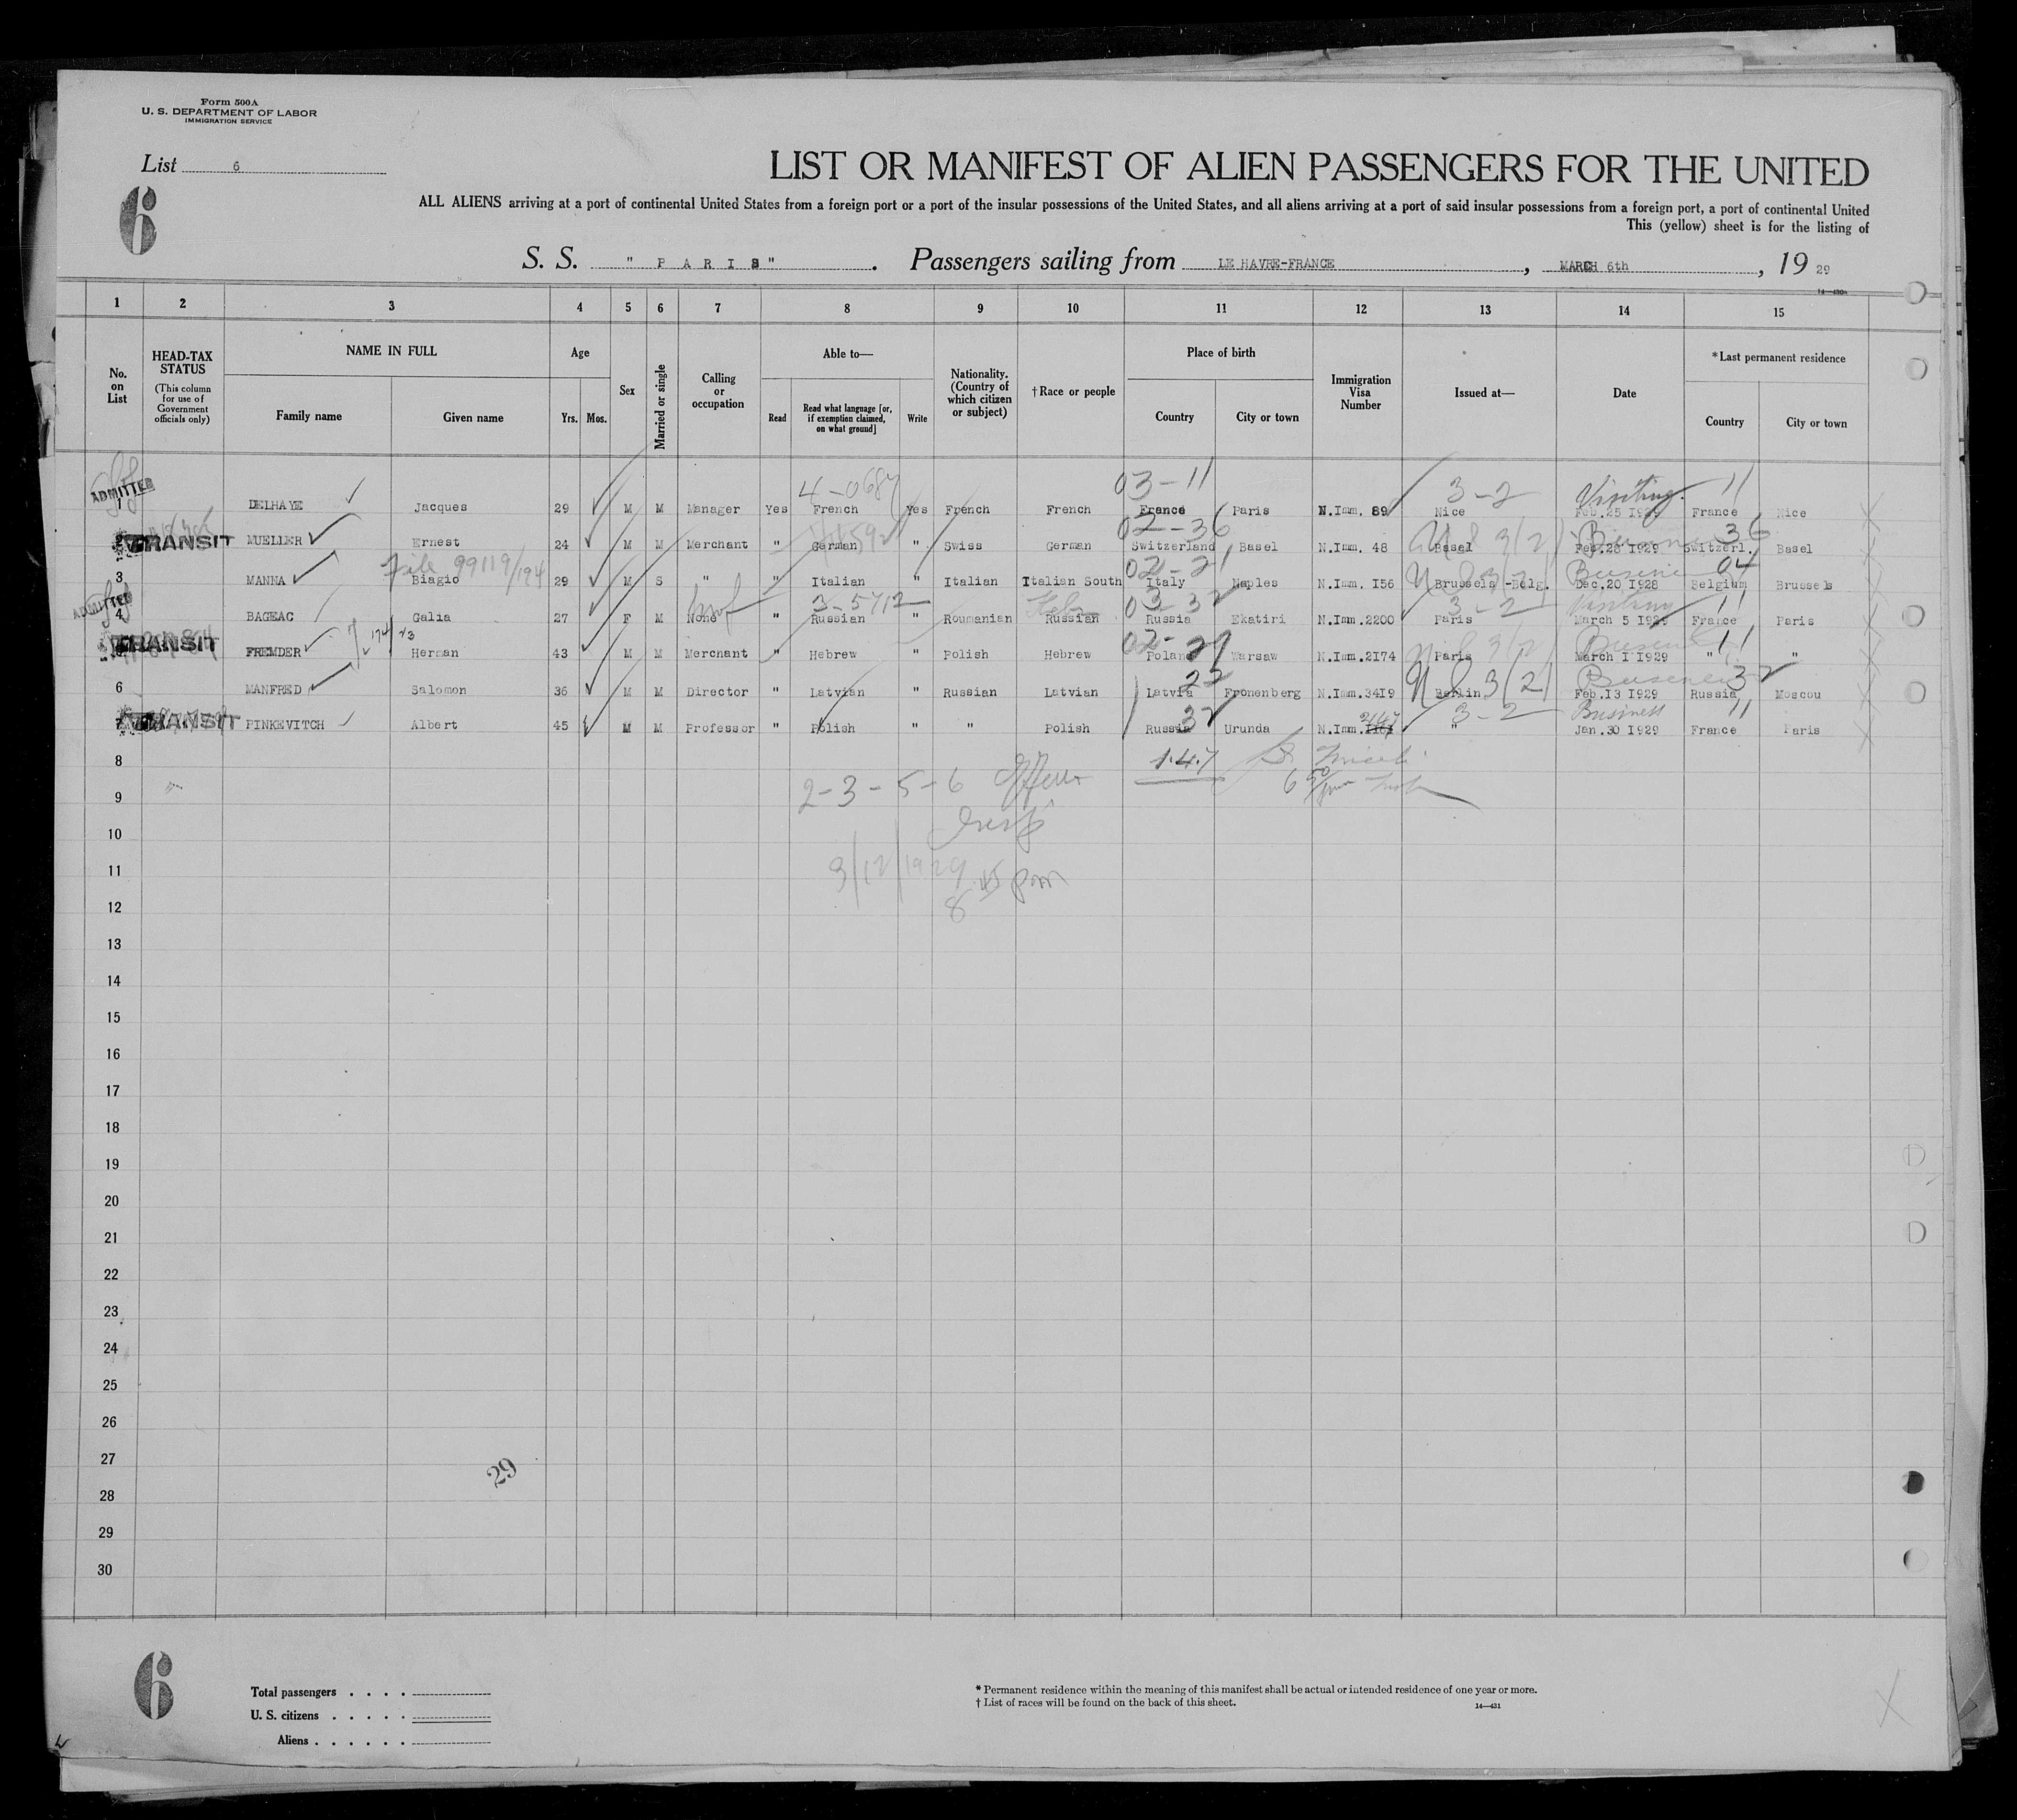 Form 500A
U. S. DEPARTMENT OF LABOR
IMMIGRATION SERVICE
List 6
6
LIST OR MANIFEST OF ALIEN PASSENGERS FOR THE UNITED
ALL ALIENS arriving at a port of continental United States from a foreign port or a port of the insular possessions of the United States, and all aliens arriving at a port of said insular possessions from a foreign port, a port of continental United
This (yellow) sheet is for the listing of
S. S. " P A R I S " . Passengers sailing from LE HAVRE-FRANCE , MARCH 6th , 19 29
1 2 3 4 5 6 7 8 9 10 11 12 13 14 15
No. on List
HEAD-TAX STATUS (This column for use of Government officials only)
NAME IN FULL Family name Given name
Age Yrs. Mos.
Sex
Married or single
Calling or occupation
Able to— Read Read what language [or, if exemption claimed, on what ground] Write
Nationality. (Country of which citizen or subject)
† Race or people
Place of birth Country City or town
Immigration Visa Number
Issued at—
Date
*Last permanent residence Country City or town
4-0687 03-11 3-2 Visiting 11
ADMITTED 1 DELHAYE Jacques 29 M M Manager Yes French Yes French French France Paris N.Imm. 89 Nice Feb.25 1929 France Nice
02-36 3/2 36
TRANSIT MUELLER Ernest 24 M M Merchant " German " Swiss German Switzerland Basel N.Imm. 48 Basel Feb.28 1929 Switzerl. Basel
File 99119/194 02-21 04
3 MANNA Biagio 29 M S " " Italian " Italian Italian South Italy Naples N.Imm. I56 Brussels -Belg. Dec.20 1928 Belgium Brussels
3-5712 03-32 3-2 Visiting 11
ADMITTED 4 BAGEAC Galia 27 F M None " Russian " Roumanian Russian Russia Ekatiri N.Imm.2200 Paris March 5 1929 France Paris
TRANSIT FREMDER Herman 43 M M Merchant " Hebrew " Polish Hebrew Poland Warsaw N.Imm.2I74 Paris March 1 1929 " "
22 3/2 32
6 MANFRED Salomon 36 M M Director " Latvian " Russian Latvian Latvia Fronenberg N.Imm.34I9 Berlin Feb.I3 I929 Russia Moscou
32 3-2 Business 11
TRANSIT PINKEVITCH Albert 45 M M Professor " Polish " " Polish Russia Urunda N.Imm. " Jan.30 I929 France Paris
8 1.4.7
2-3-5-6
9
10
11
3/12/1929
8 45 pm
12
13
14
15
16
17
18
19
20
21
22
23
24
25
26
27
29
28
29
30
6
Total passengers
U. S. citizens
Aliens
* Permanent residence within the meaning of this manifest shall be actual or intended residence of one year or more.
† List of races will be found on the back of this sheet.
14—431